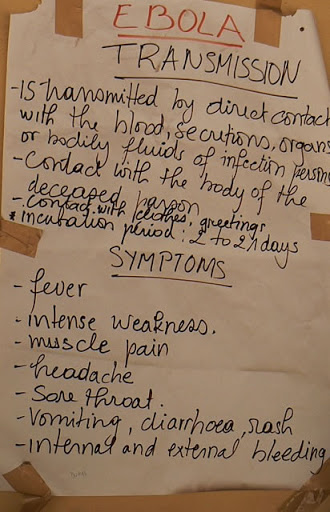 EBOLA
TRANSMISSION
- IS transmitted by direct contact
with the blood, secretions, organs
or bodily fluids of infection persons
- Contact with the body of the
deceased person
- Contact with clothes, greetings
* incubation period: 2 to 21 days
SYMPTOMS
- fever
- intense weakness.
- muscle pain
- headache
- Sore throat.
- Vomiting, diarrhoea, rash
- internal and external bleeding